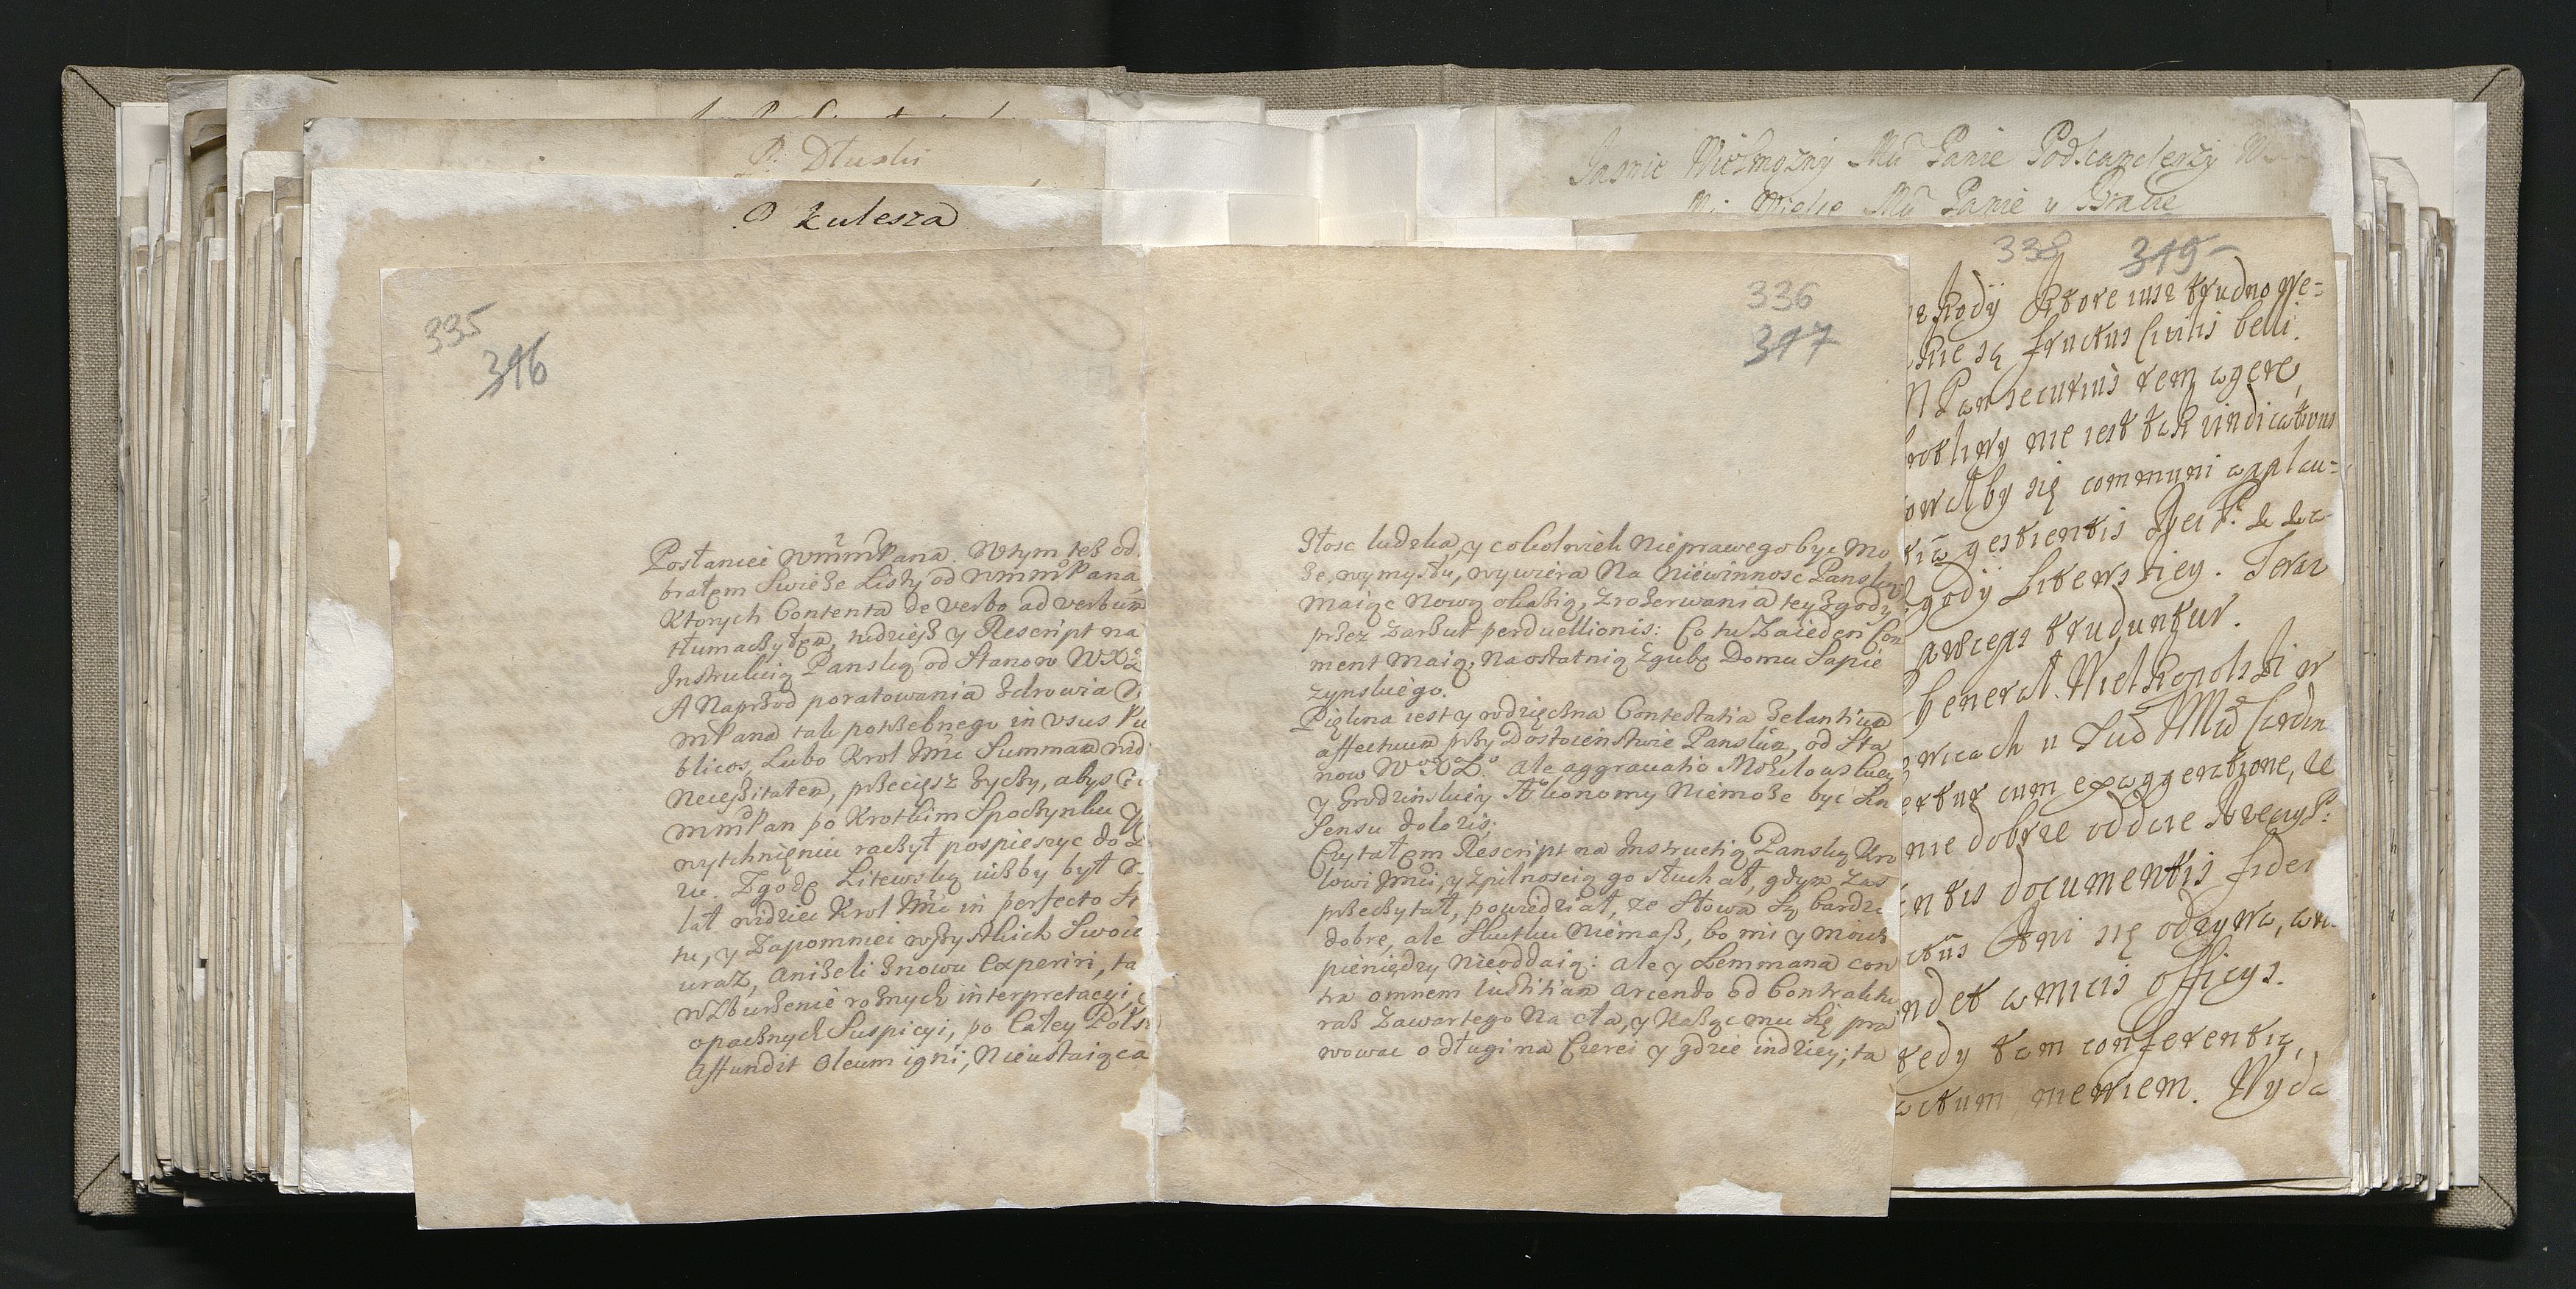 P. Dłuski
P kulesza
335
316
Posłaniec WMMPana. W tym też od
brałem Swieże Listy od WMMPana,
Ktorych Contenta de verbo ad verbum
tłumaczyłem, tudziesz y Rescript na
Instrukcią Panską od Stanow WXL
A Naprzod poratowania Zdrowia W
mPana tak potrzebnego in Vsus Pu
blicos, Lubo Krol Jmć Summam widzi
Necessitatem, przeciesz życzy, abyś W
mmPan po Krotkim Spoczynku y
wytchnieniu raczył pospieszyc do
ru. Zgodę Litewską iużby był
lał widziec Krol Jmć in perfecto
tu, y Zapomniec wszystkich Swoie
uraz, aniżeli znowu Experiri, ta
wzburzenie rożnych interpretacyi,
opacznych Suspicyi, po Całey Polsz
Affundit Oleum igni, Nieustaiąca
336
317
złosc ludzka, y cokolwiek Nieprawego byc Mo
że, wymysłu, wywiera Na Niewinnosc Panską
Maiąc Nową okazią, zrozerwania tey Zgody
przez Zarzut perduellionis: Co tu Zaieden Com
ment Maią, Naostatnią Zgubę Domu Sapie
zynskiego.
Piękna iest y wdzięczna Contestatia Zelantium
affectuum przy Dostoienstwie Panskim, od Sta
now WXL. Ale aggrauatio Mohilowskiey
y Grodzinskiey Ækonomy Niemoże być Sin
Sensu doloris.
Czytałem Rescript na Instructią Panską Kro
lowi Jmci, y zpilnoscią go słuchał, gdym zas
przeczytał, powiedział, ze Słowa Są bardzo
dobre, ale Skutku Niemasz, bo mi y moich
pieniędzy Nieoddaią: ale y Lemmana con
tra omnem Iustitiam arcendo od Contraktu
raz Zawartego Na cła, y każąc mu Się pra
wowac o długi na Czerei y gdzie indziey; ta
Jasnie Wielmozny Mci Panie Podkanclerzy W
Mi Wielce Mci Panie y Bracie
338 319
zkody Ktore iusz trudno We=
kie są fructus Civilis belli.
M Pan securius rem agere,
rotliwy nie iest tak vindicativus
ow Aby się communi applau=
gestientis
gody Litewskiey. Teraz
truduntur.
General. Wielkopolski w
owicach u
ertur cum exaggeratione, ze
nie dobrze oddaie
ntis documentis fidei
Ani się odzywa, ani
ndet amicis officys.
tedy tam conferentia,
actum niewiem. Wyda